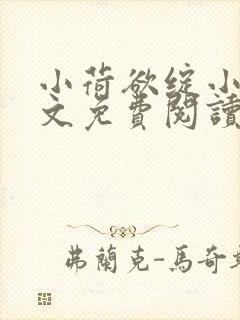 小荷欲綻小
文免費閱讀
弗蘭克-馬奇